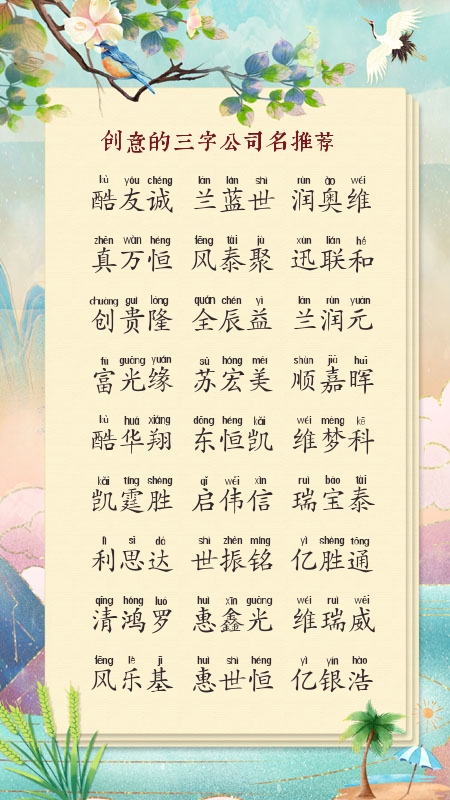 创意的三字公司名推荐
kù yǒu chéng lán lán shì rùn ào wéi
酷友诚 兰蓝世 润奥维
zhēn wàn héng fēng tài jù xùn lián hé
真万恒 风泰聚 迅联和
chuàng guì lóng quán chén yì lán rùn yuán
创贵隆 全辰益 兰润元
fù guāng yuán sū hóng měi shùn jiā huī
富光缘 苏宏美 顺嘉晖
kù huá xiáng dōng héng kǎi wéi mèng kē
酷华翔 东恒凯 维梦科
kǎi tíng shèng qǐ wěi xìn ruì bǎo tài
凯霆胜 启伟信 瑞宝泰
lì sī dá shì zhèn míng yì shèng tōng
利思达 世振铭 亿胜通
qīng hóng luó huì xīn guāng wéi ruì wēi
清鸿罗 惠鑫光 维瑞威
fēng lè jī huì shì héng yì yín hào
风乐基 惠世恒 亿银浩